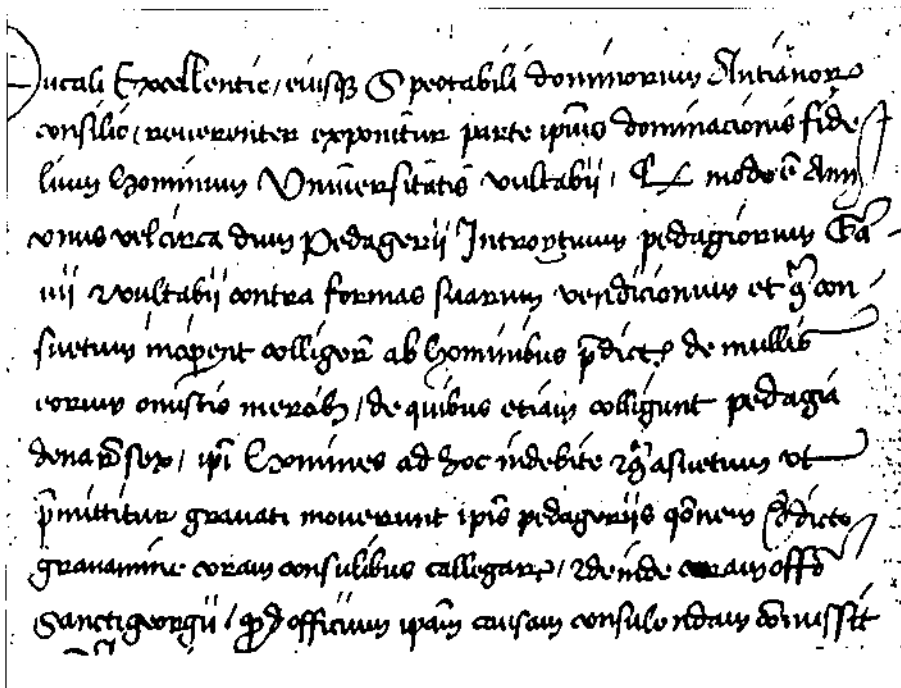 Ducali Excellentie / eiusque Spectabili dominorum Antianorum
consilio / reverenter exponitur parte ipsius dominacionis fide
lium hominum Universitatis vultabii / modo est Anni
unus vel circa dum pedagerii Introytuum pedagiorum Ga
vii et vultabii contra formas suarum vendicionum et contra con
suetum inceperunt colligere ab hominibus predictis de mullis
eorum onustis mercibus / de quibus etiam colligunt pedagia
denariorum sex / ipsi homines ad hoc indebite et contra asuetum ut
premittitur gravati moverunt ipsis pedageriis questionem de dicto
gravamine coram consulibus callegarum / et deinde coram officio
Sancti georgii / quod officium ipsam causam consulendam commissit